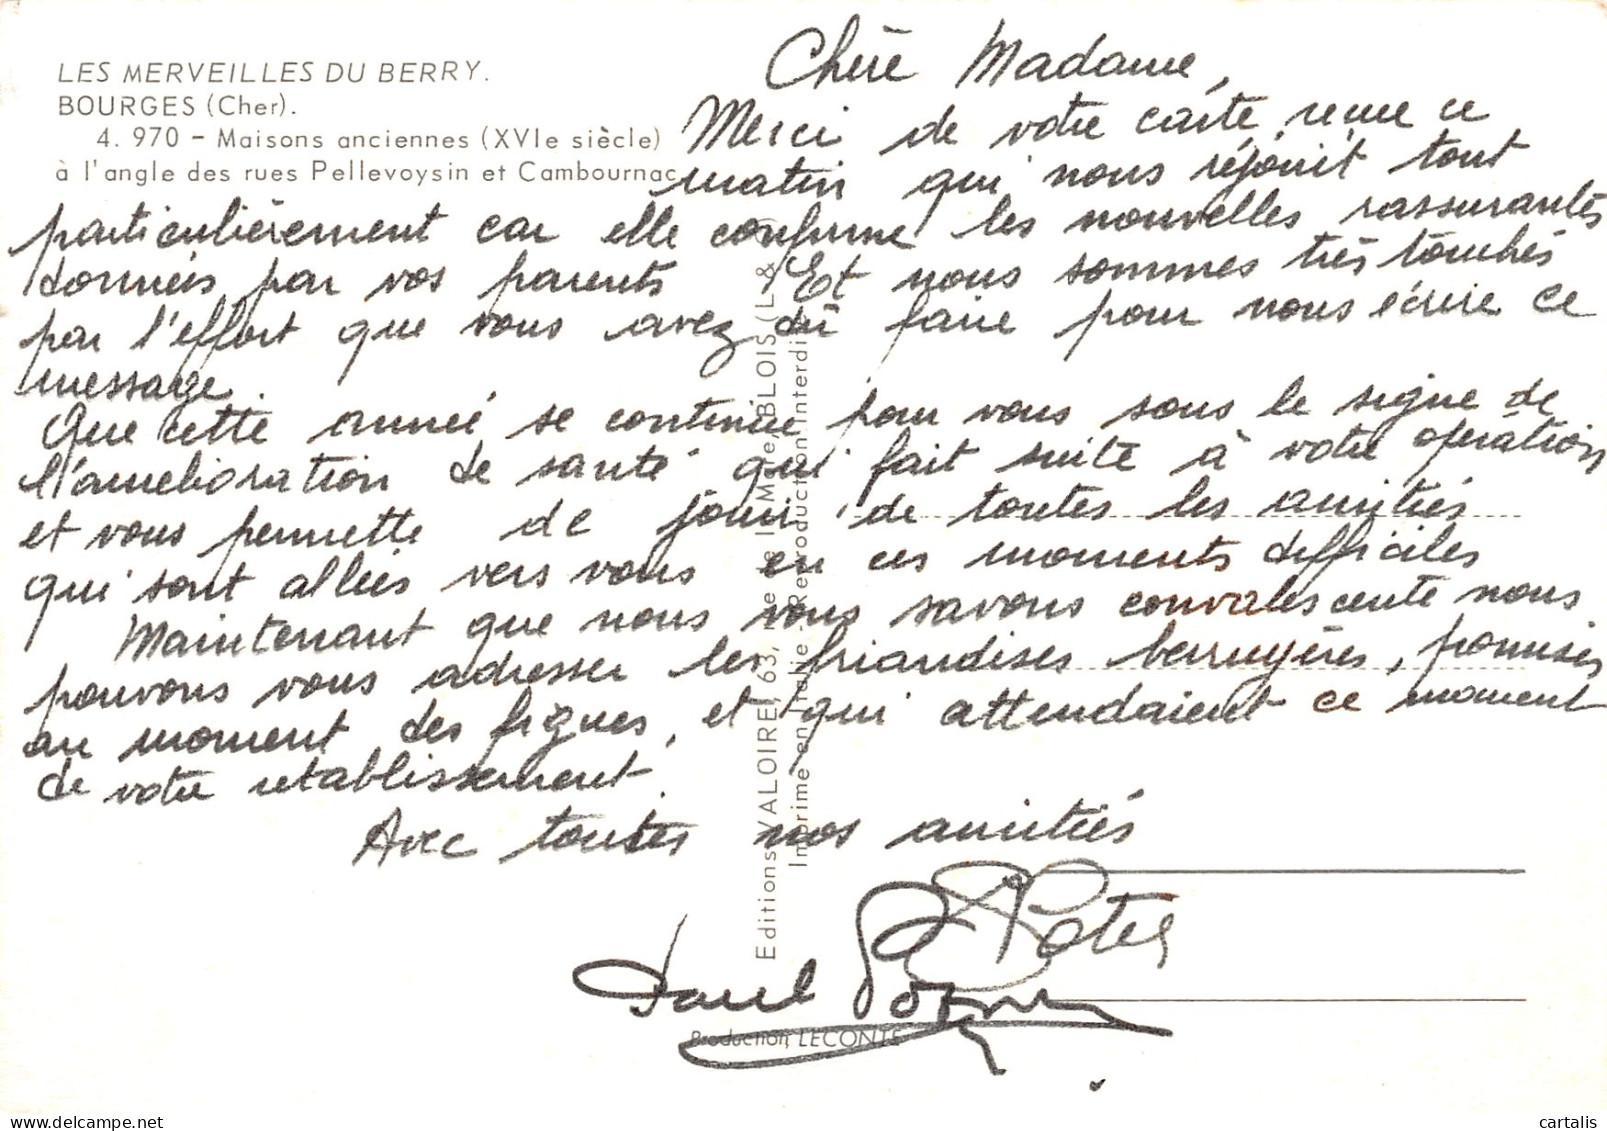 LES MERVEILLES DU BERRY.
BOURGES (Cher).
4. 970 - Maisons anciennes (XVIe siècle)
à l'angle des rues Pellevoysin et Cambournac
Chère Madame,
Merci de votre carte, reçue ce
matin qui nous réjouit tout
particulièrement car elle confirme les nouvelles rassurantes
données par vos parents. Et nous sommes très touchés
par l'effort que vous avez dû faire pour nous écrire ce
message.
Que cette année se continue pour vous sous le signe de
l'amélioration de santé qui fait suite à votre opération
et vous permette de jouir de toutes les amitiés
qui sont allées vers vous en ces moments difficiles
Maintenant que nous vous savons convalescente nous
pouvons vous adresser les friandises berruyères, promises
au moment des figues, et qui attendaient ce moment
de votre rétablissement.
Avec toutes nos amitiés
Paul
Editions VALOIRE, 63, BLOIS (L &
Imprimé en Italie - Reproduction interdi
Production LECONTE
cartalis